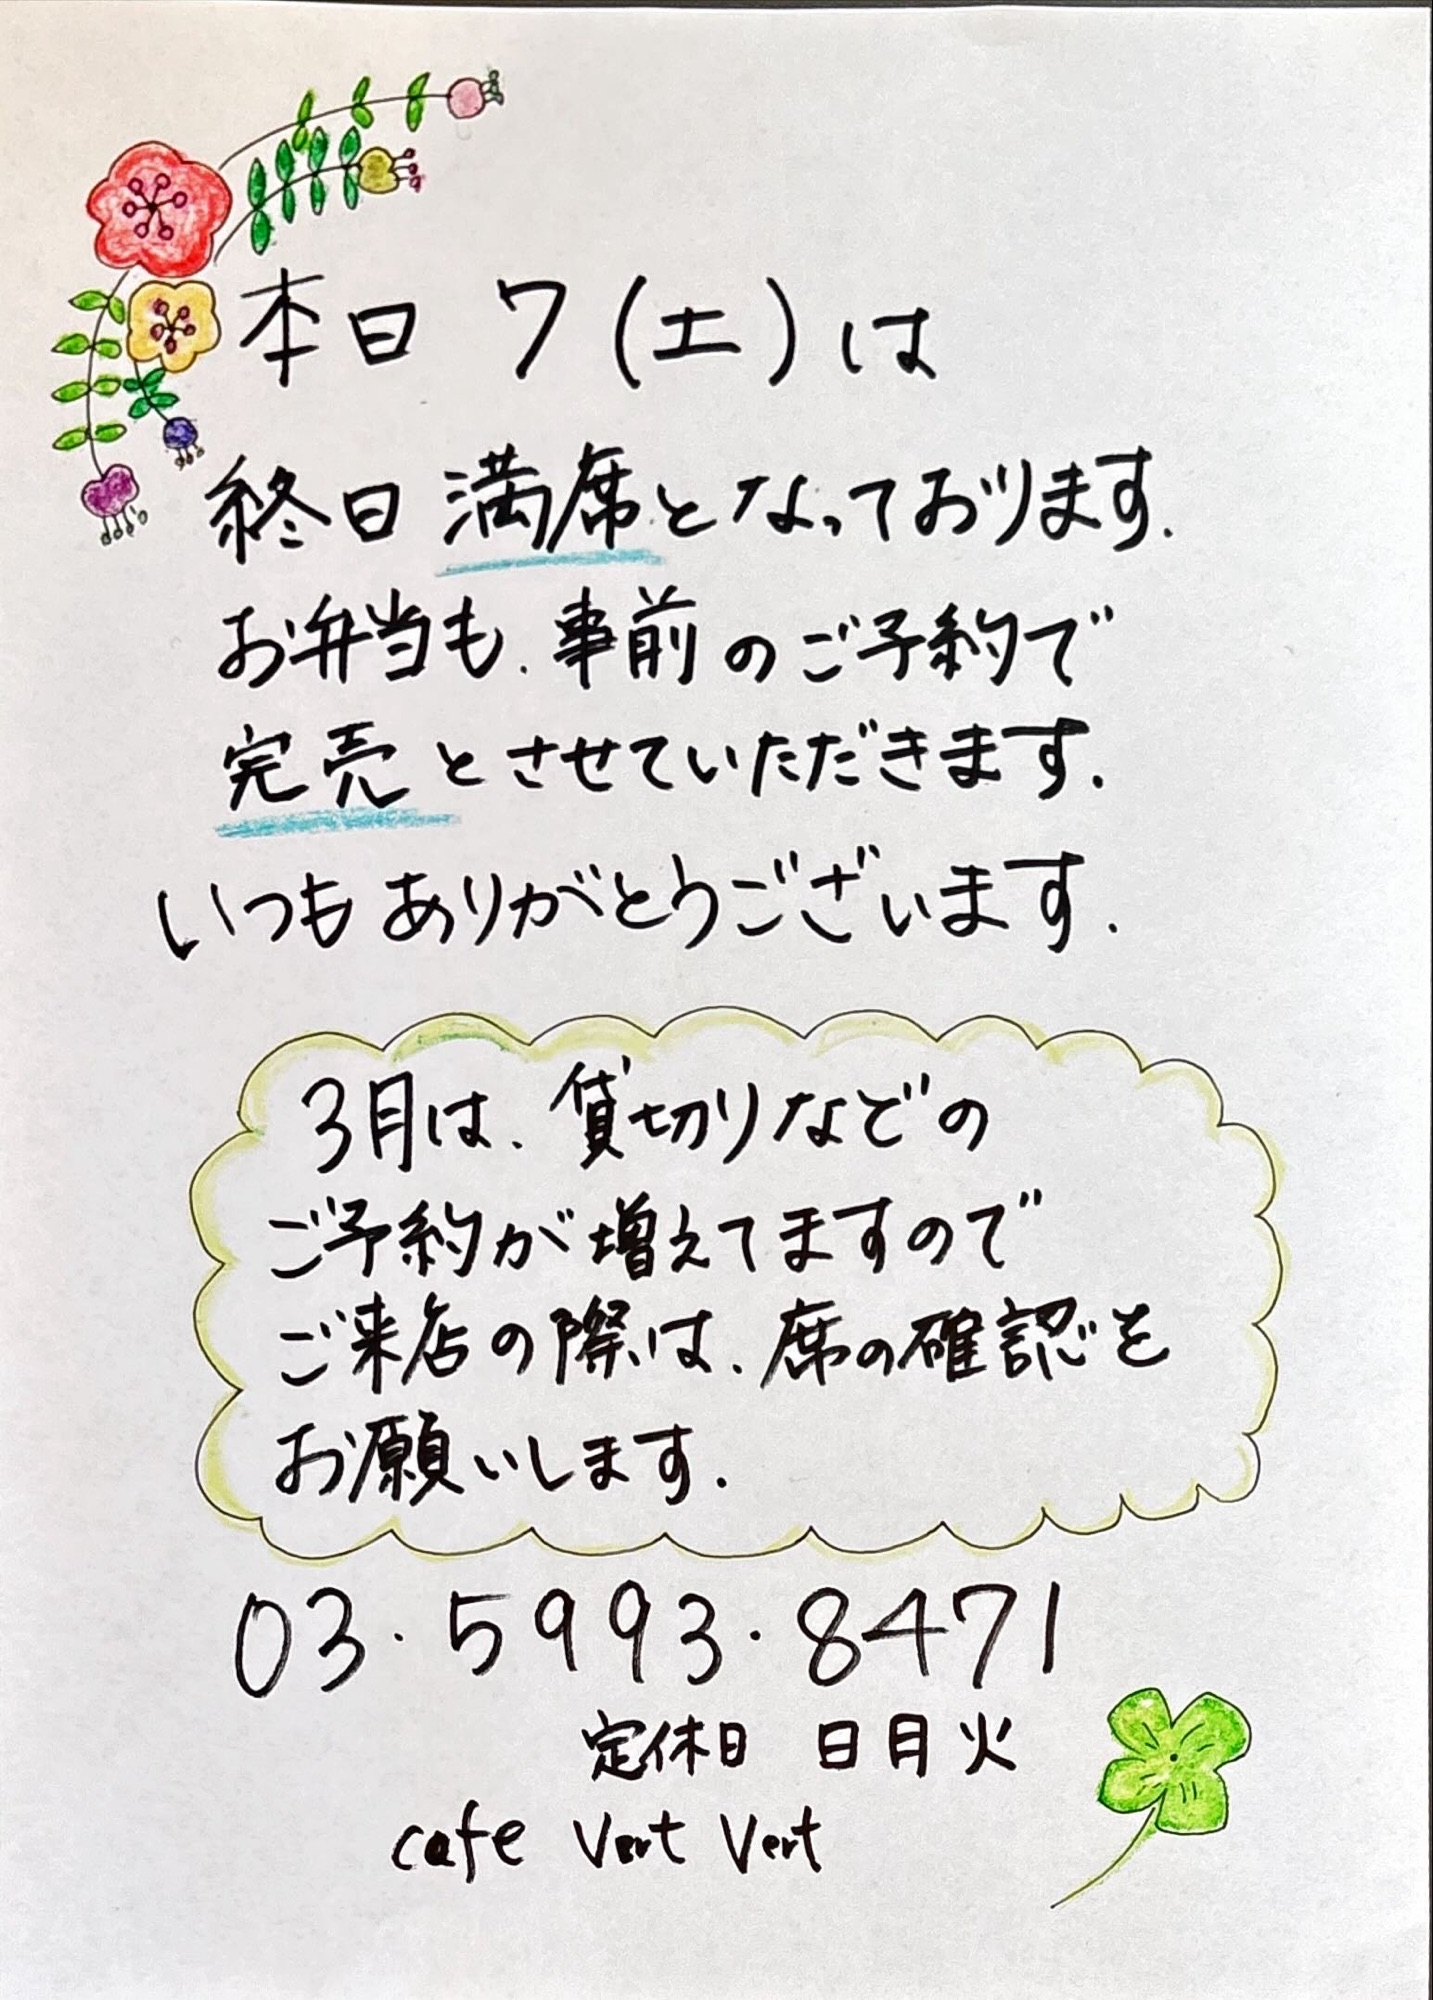 本日 7(土)は
終日 満席となっております.
お弁当も、事前のご予約で
完売とさせていただきます.
いつもありがとうございます.
3月は、貸切りなどの
ご予約が増えてますので
ご来店の際は、席の確認を
お願いします.
03・5993・8471
定休日 日月火
cafe Vert Vert